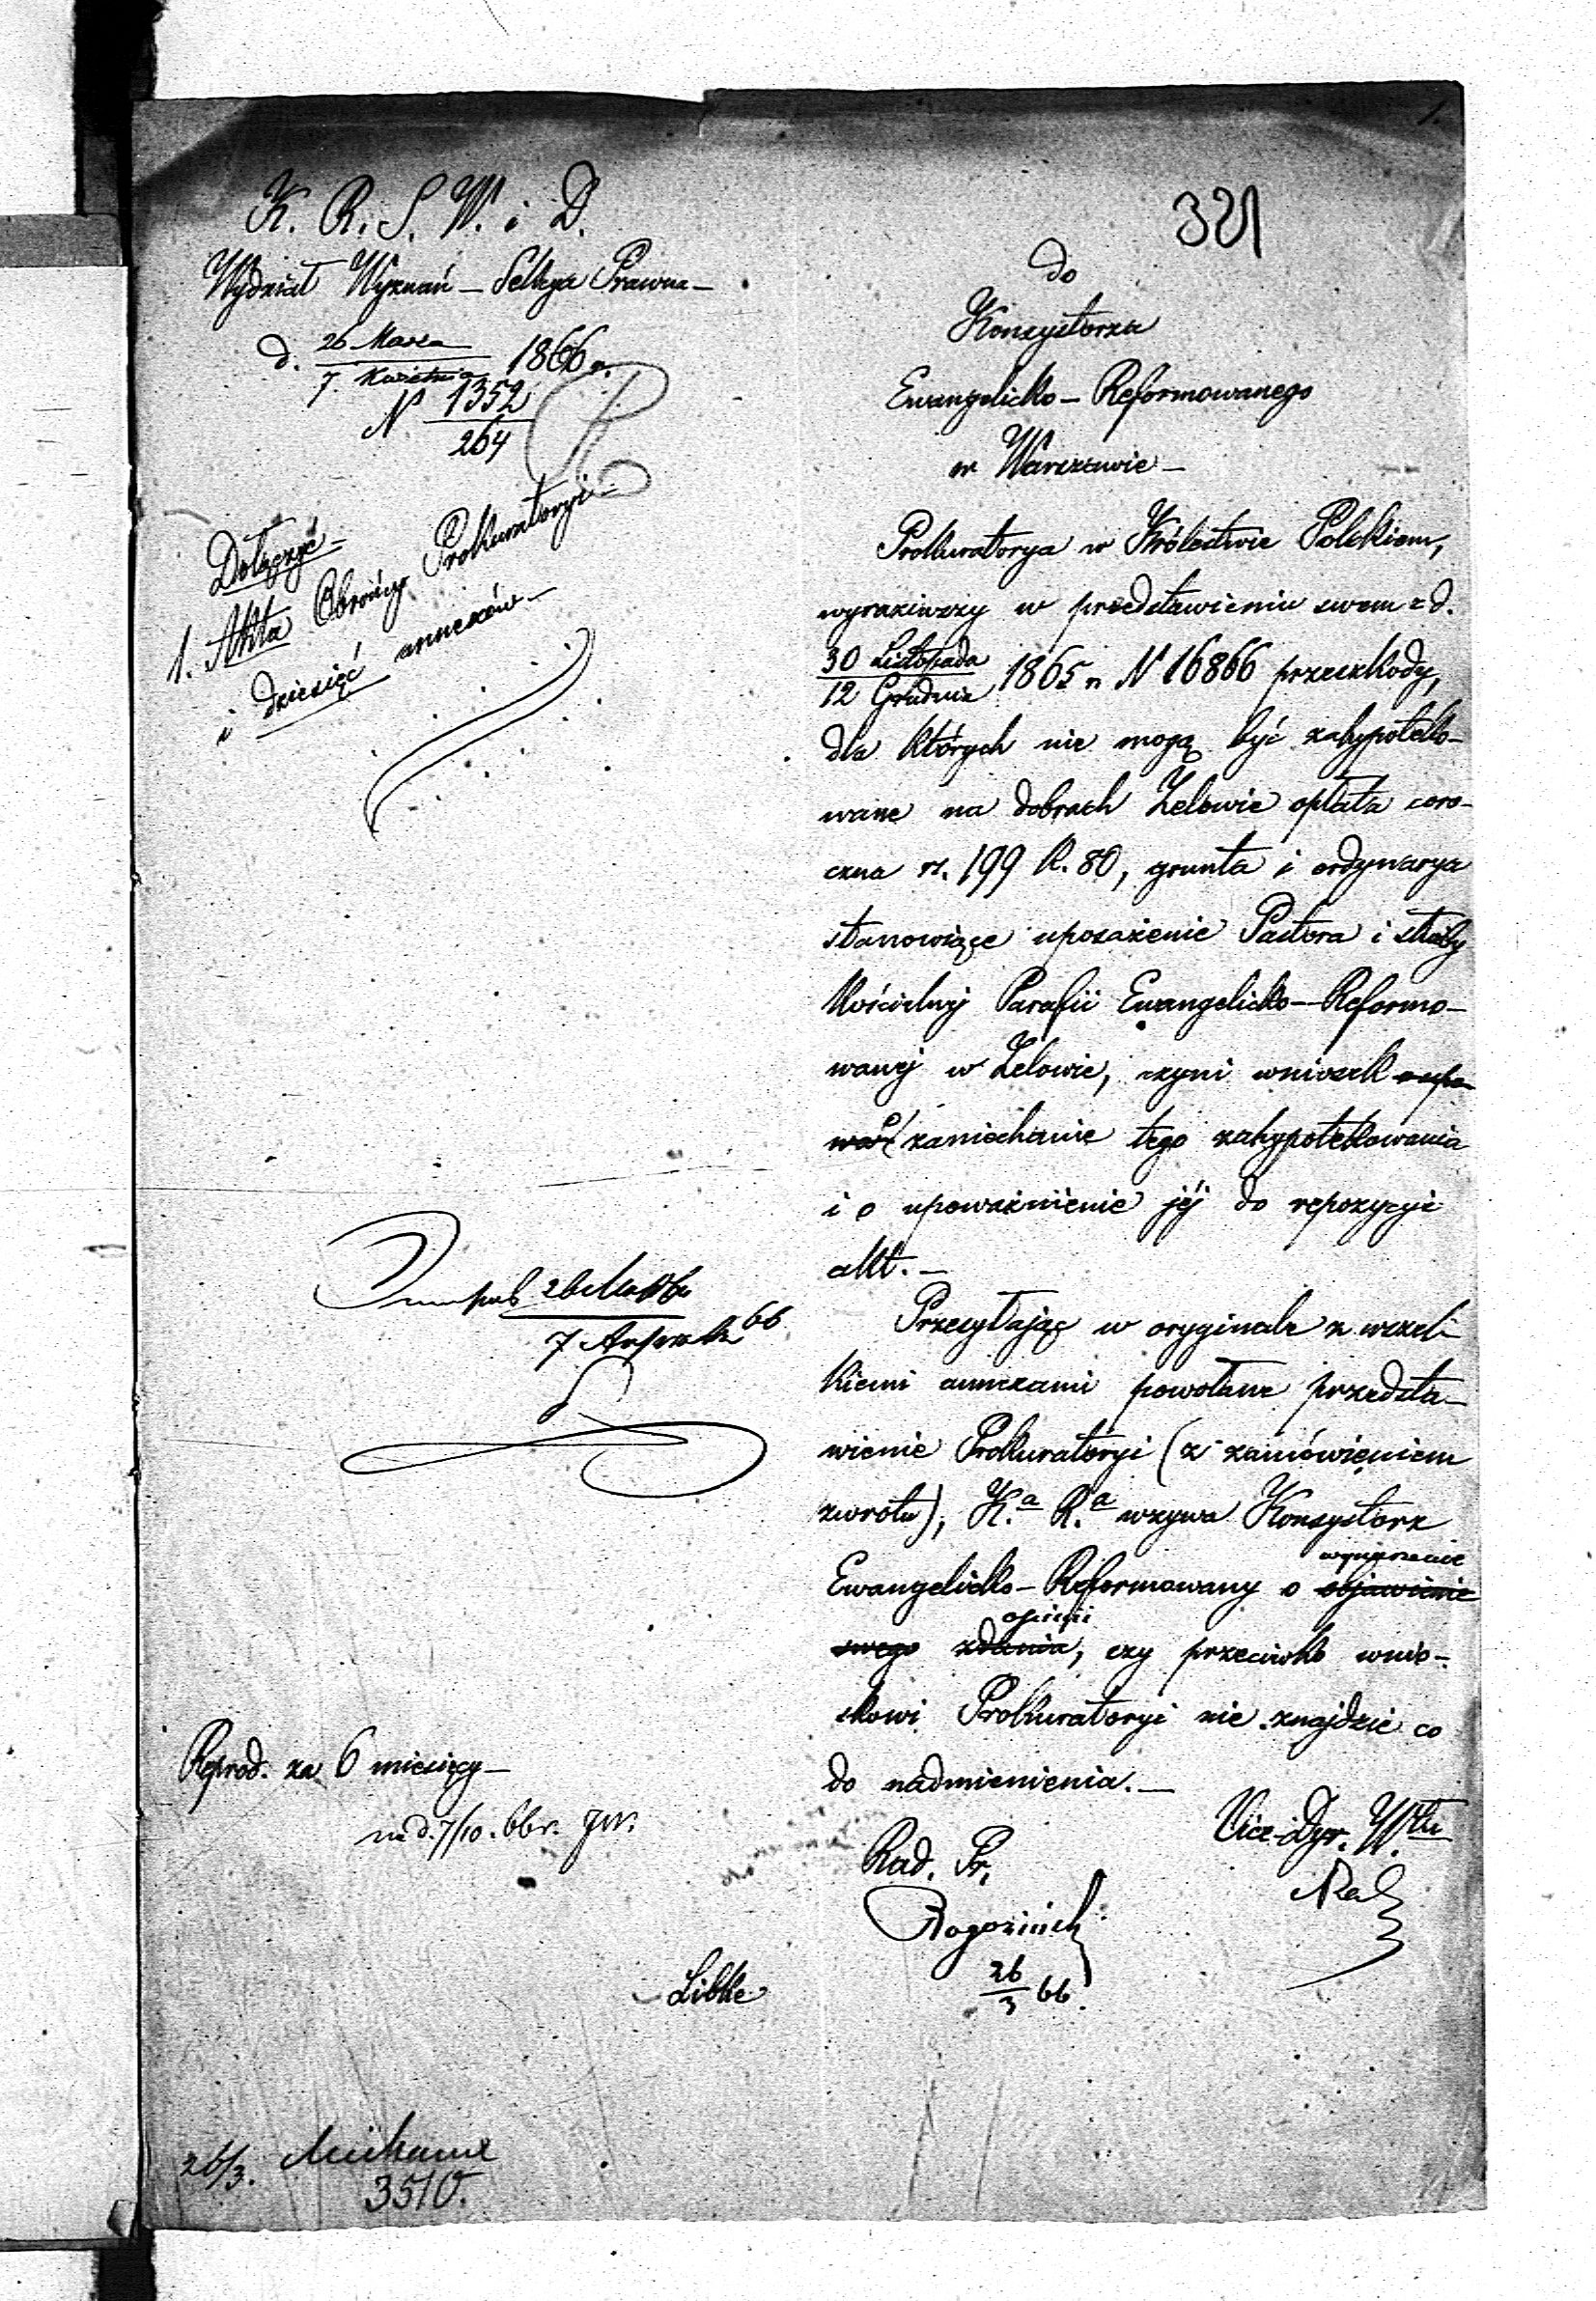 K. R. S. W. i D.
Wydział Wyznań – Sekcya Prawna –
d. 26 Marca
7 Kwietnia 1866 r.
N 1352
264
Dołączyć –
1. Akta Obrońcy Prokuratoryi –
i dziesięć annexów –
26
7 66
Reprod. za 6 miesięcy –
na d. 7/10. 66 r.
Libke
26/3.
3510.
321
do
Konsystorza
Ewangelicko – Reformowanego
w Warszawie –
Prokuratorya w Królestwie Polskiem,
wyraziwszy w przedstawieniu swem z d.
30 Listopada
12 Grudnia 1865 r. N 16866 przeszkody,
dla których nie mogą być zahypoteko-
wane na dobrach Zelowie opłata coro-
czna rs. 199 k. 80, grunta i ordynarya
stanowiące uposażenie Pastora i służby
kościelnej Parafii Ewangelicko – Reformo-
wanej w Zelowie, czyni wniosek
o zaniechanie tego zahypotekowania
i o upoważnienie jéj do repozycyi
akt. –
Przesyłając w oryginale z wszel-
kiemi annexami powołane przedsta-
wienie Prokuratoryi (z zamówieniem
zwrotu), K.a R.a wzywa Konsystorz
wyjawienie
Ewangelicko – Reformowany o objawienie
opinii
swego zdania, czy przeciwko wnio-
skowi Prokuratoryi nie znajdzie co
do nadmienienia. –
Vice-Dyr. W.łu
Rad. Pr.
26
3 66.